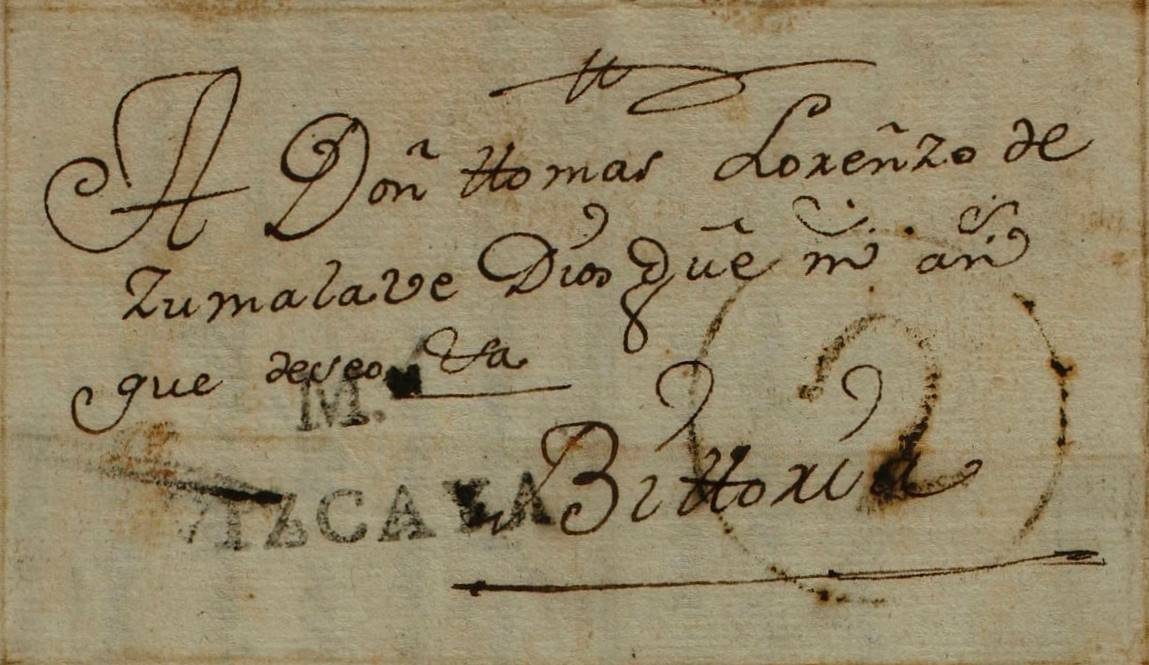 A Don Thomas Lorenzo de
Zumalave Dios gue ms as
que deseo
M.
VIZCAYA
Bittoria
2